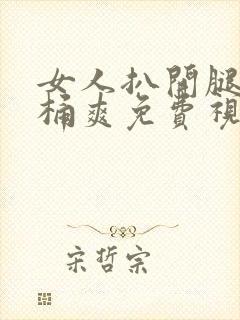 女人扒開腿
桶爽免費視
宋哲宗